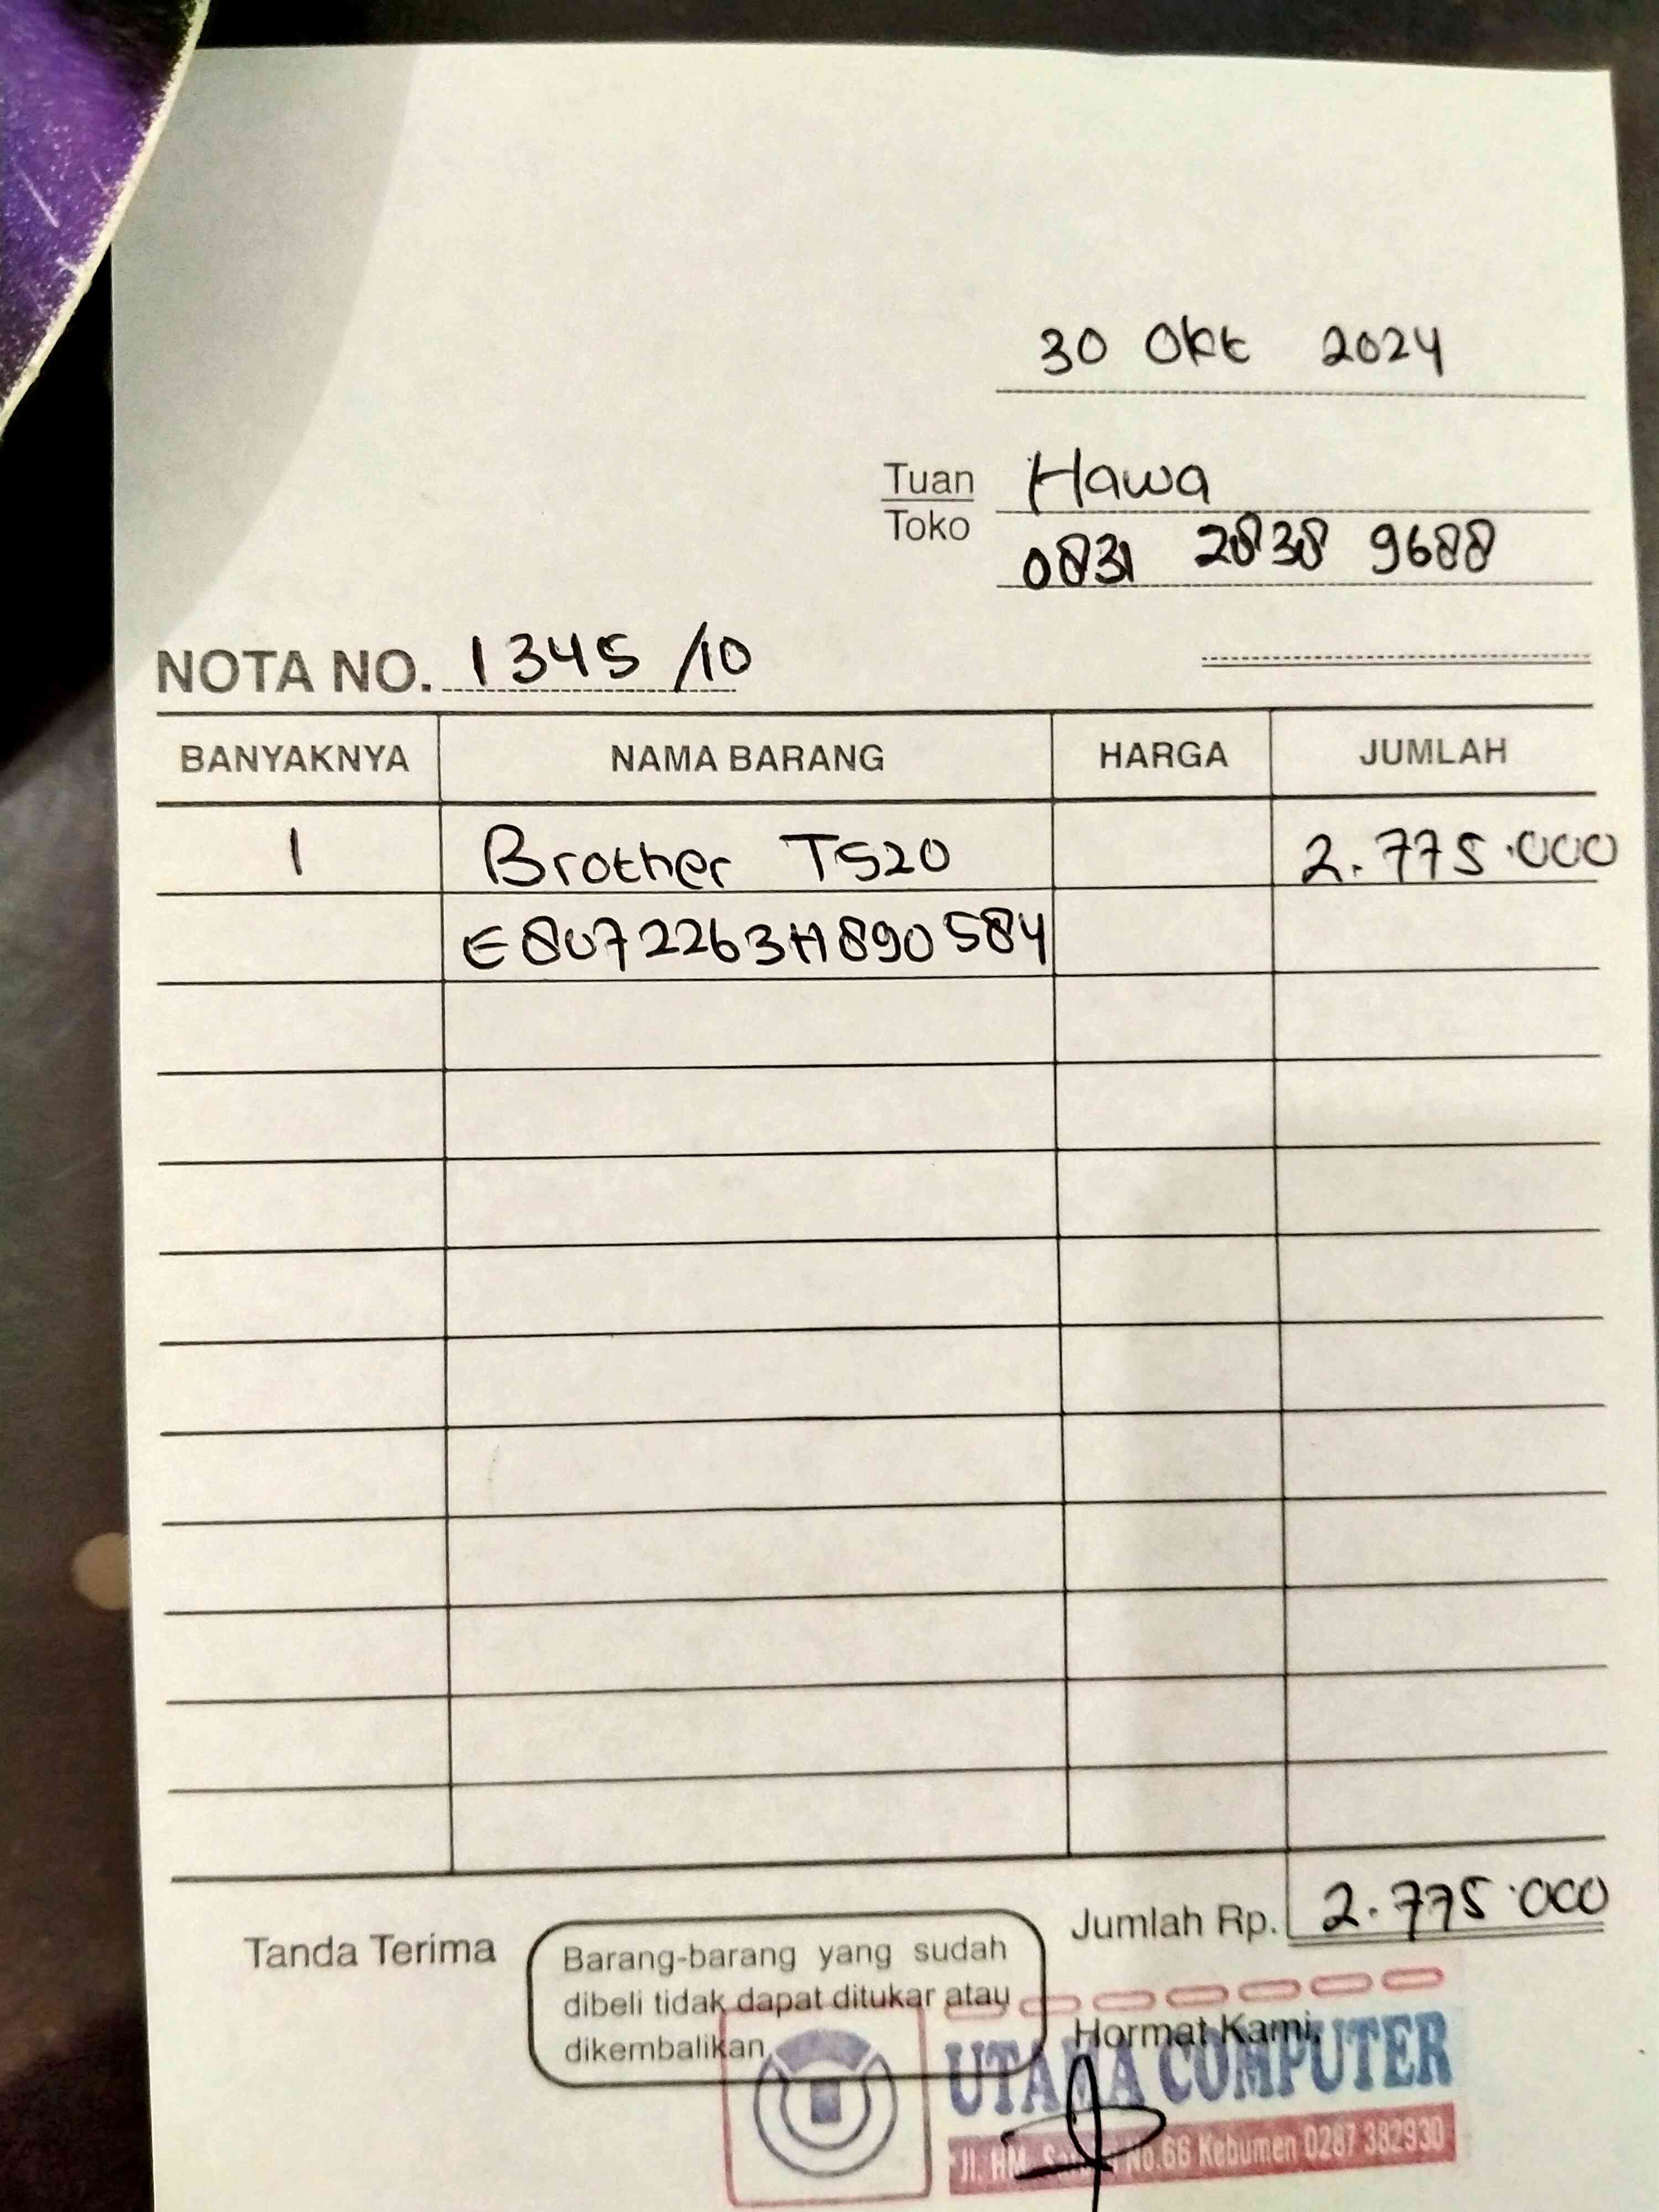 30 Okt 2024
Tuan Hawa
Toko 0831 2838 9688
NOTA NO. 1345 /10
BANYAKNYA NAMA BARANG HARGA JUMLAH
1 Brother T520 2.775.000
E8072263H890584
Jumlah Rp. 2.775.000
Tanda Terima
Barang-barang yang sudah
dibeli tidak dapat ditukar atau
dikembalikan
Hormat Kami,
UTAMA COMPUTER
Jl. HM. No.66 Kebumen 0287 382930